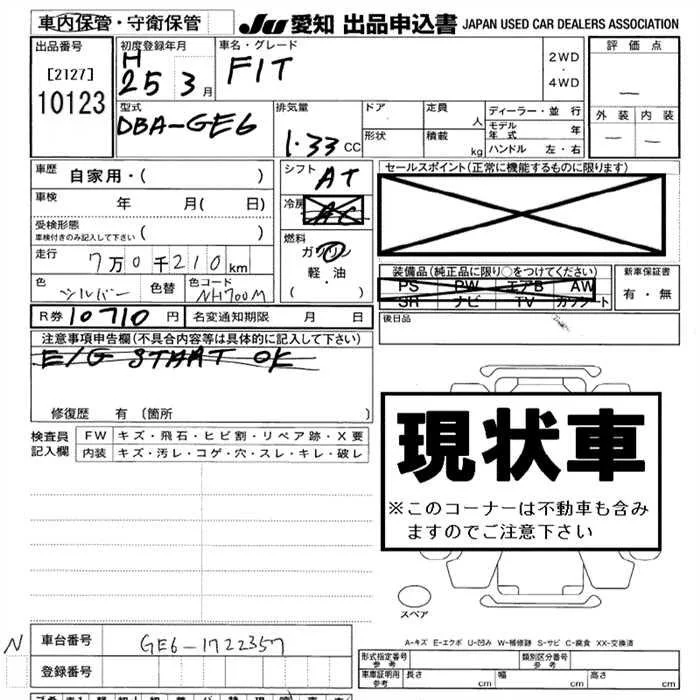 車内保管・守衛保管 JU 愛知 出品申込書 JAPAN USED CAR DEALERS ASSOCIATION
出品番号 初度登録年月 車名・グレード 評価点
[2127] H 25 3月 FIT 2WD ・ 4WD —
10123
型式 排気量 ドア 定員 人 ディーラー・並行 外装 内装
DBA-GE6 1.33 CC 形状 積載 kg モデル年式 年 — —
ハンドル 左・右
車歴 自家用・( ) シフト AT セールスポイント(正常に機能するものに限ります)
車検 年 月( 日) 冷房 AC
受検形態 車検付きのみ記入して下さい ( ) 燃料 ガソリン
走行 7万0千210km 軽・油 装備品(純正品に限り○をつけてください) 新車保証書
色 シルバー 色替 色コード NH700M ( ・ ) PS PW エアB AW 有・無
SR ナビ TV カワシート
R券 10710円 名変通知期限 月 日 後日品
注意事項申告欄(不具合内容等は具体的に記入して下さい)
E/G START OK
修復歴 有〔箇所 〕
検査員記入欄 FW キズ・飛石・ヒビ割・リペア跡・X要
内装 キズ・汚レ・コゲ・穴・スレ・キレ・破レ
現状車
※このコーナーは不動車も含み
ますのでご注意下さい
スペア
A-キズ E-エクボ U-凹み W-補修跡 S-サビ C-腐食 XX-交換済
N 車台番号 GE6-1722357
登録番号
形式指定番号 参考 類別区分番号 参考
車庫証明用 参考 長さ cm 幅 cm 高さ cm